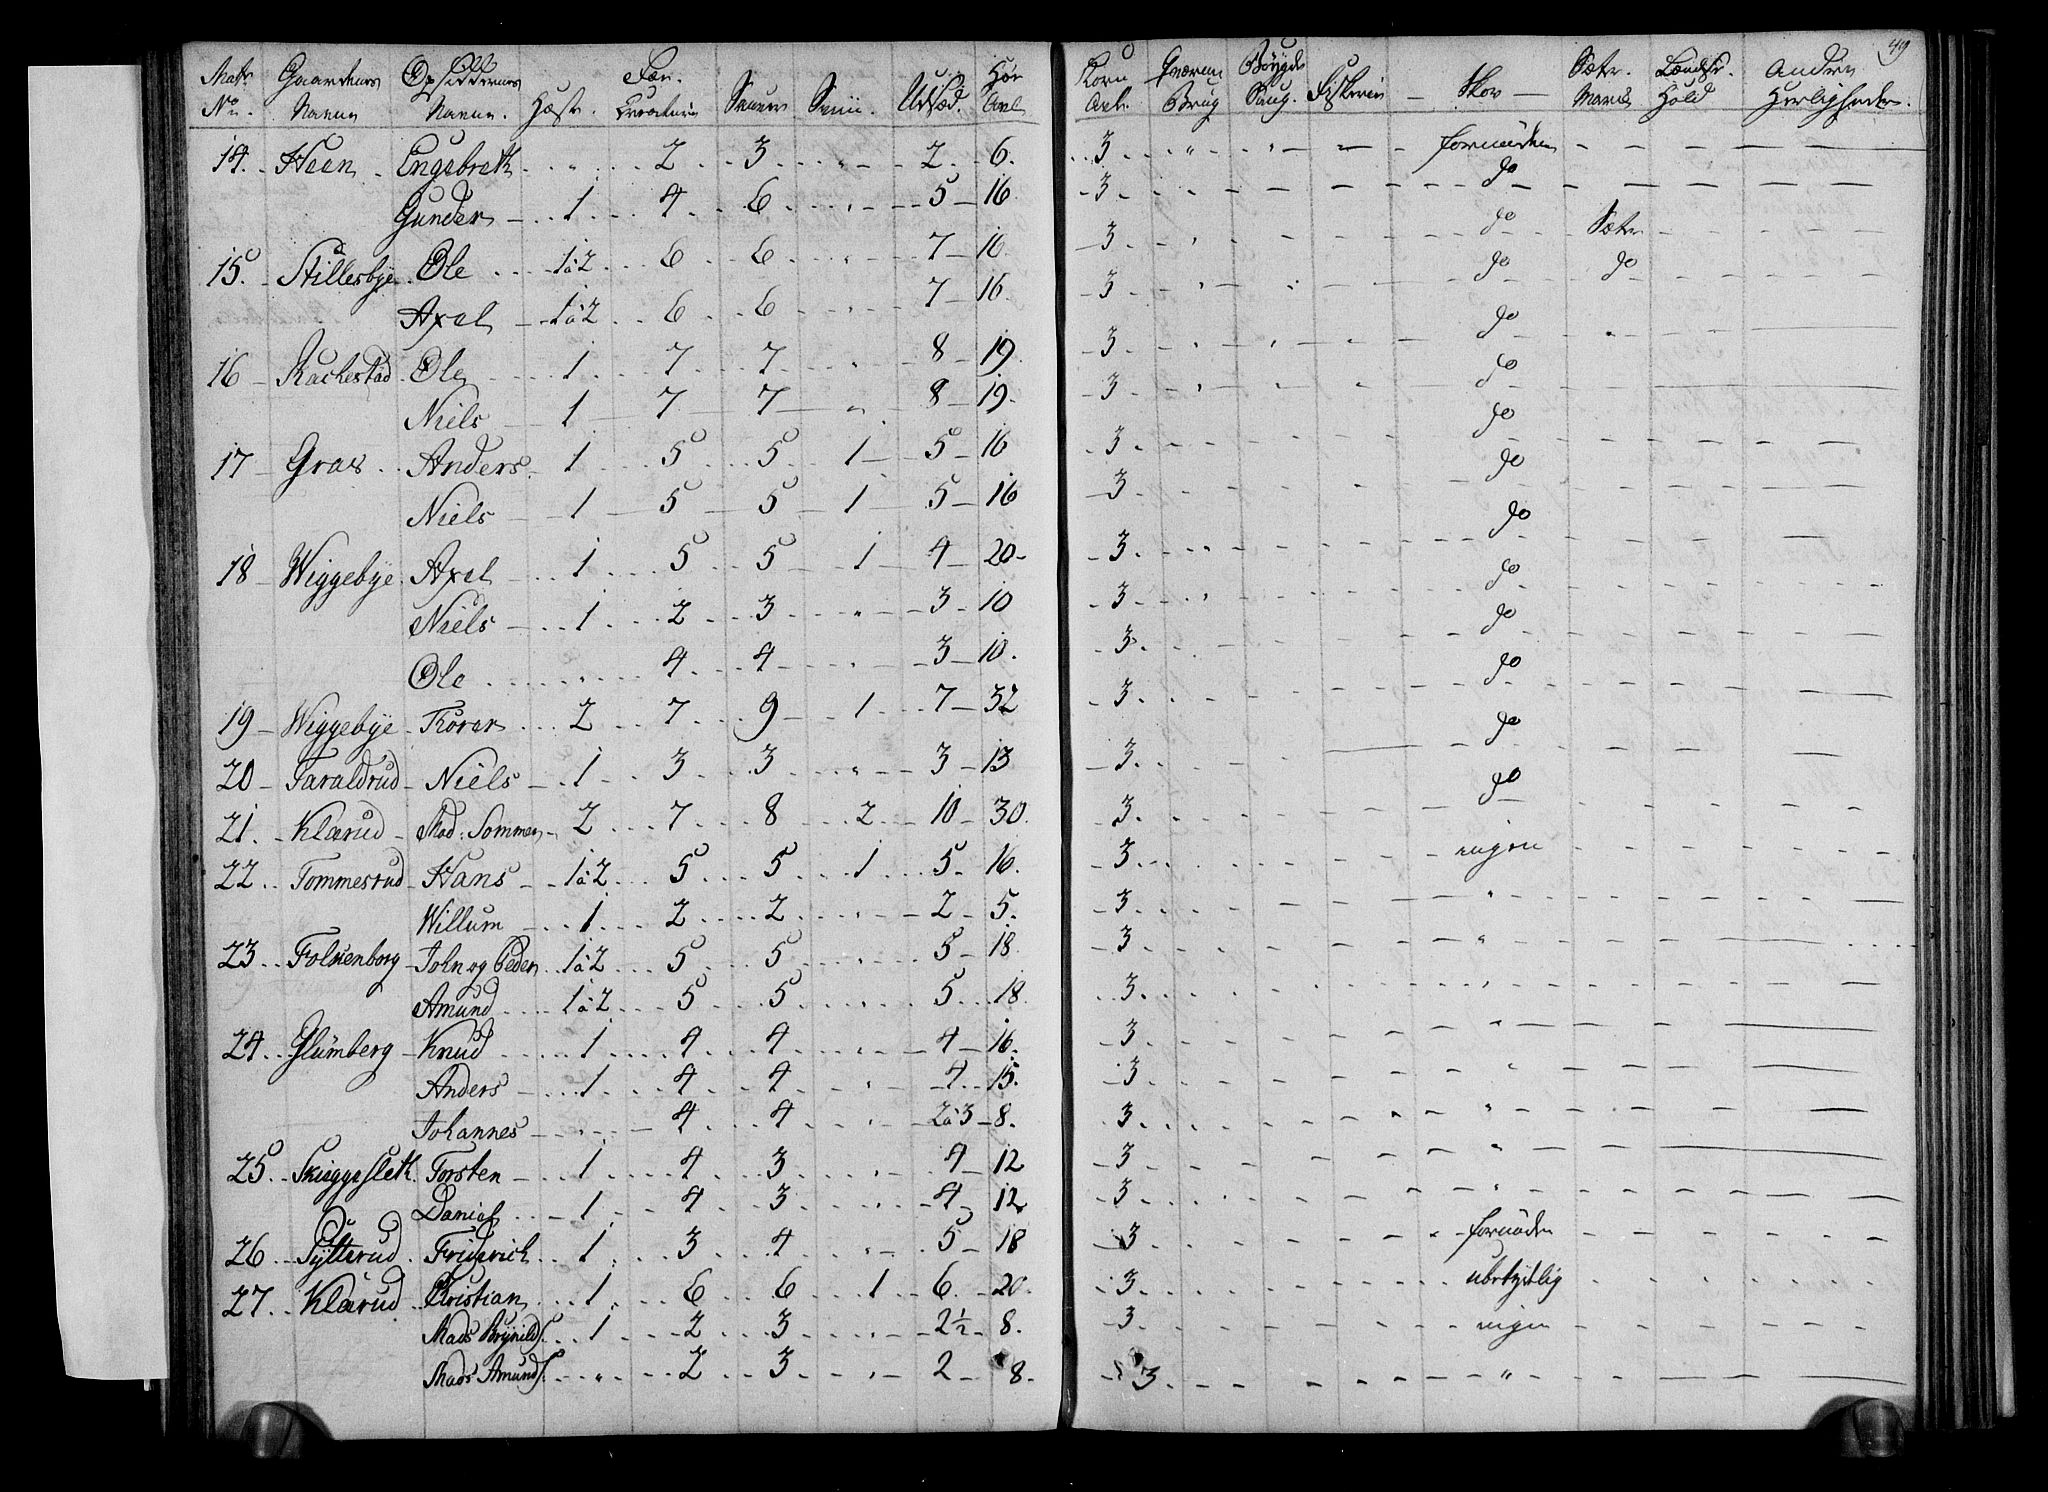 49
Matr No. Gaardenes Navne Opsiddernes Navne. Heste. Fæe Creature Sauer Sviin. Udsæd. Høe Avl Korn Avl. Qværne Brug Bøygde Saug. Fiskerie Skov Sæter. Havn Hold Andre Herligheder.
14. Heen Engebreth " 2 3 " 2 6. 3 " " fornøden
Gunder 1 4 6 5 16 3 do
15. Stillesbye Ole 1 à 2 6 6 7 16 3 do Sæter
Axel 1 à 2 6 6 7 16 3 do do
16 Rackestad Ole 1 7 7 8 19. 3 do
Niels 1 7 7 8 19. 3 do
17 Graa Anders 1 5 5 1 5 16 3 do
Niels 1 5 5 1 5 16 3 do
18 Wiggebye Axel 1 5 5 1 4 20 3 do
Niels 1 2 3 " 3 10 3 do
Ole 4 4 3 10. 3 do
19 Wiggebye Korer 2 7 9 1 7 32 3 do
20 Taraldrud Niels 1 3 3 " 3 13 3 do
21. Klærud Mad: Sommer 2 7 8 2 10 30. 3 do
22 Tommesrud Hans 1 à 2 5 5 1 5 16. 3 ingen
Willum 1 2 2 2 5. 3 "
23 Folkenborg John og Peder 1 à 2 5 5 5 18. 3 "
Amund 1 à 2 5 5 5 18. 3 "
24 Glumberg Knud 1 4 4 4 16. 3 "
Anders 1 4 4 4 15. 3 "
Johannes 4 4 2 à 3 8. 3 "
25 Skieggesleth Torsten 1 4 3 4 12 3 "
Daniel 1 4 3 4 12 3 "
26 Tytterud Friderich 1 3 4 5 18 3 fornøden
27 Klærud Christian 1 6 6 1 6 20. 3 ubetydlig
Mads Brynilds. 1 2 3 2½ 8. 3 ingen
Mads Amunds. " 2 3 2 8. 3 "